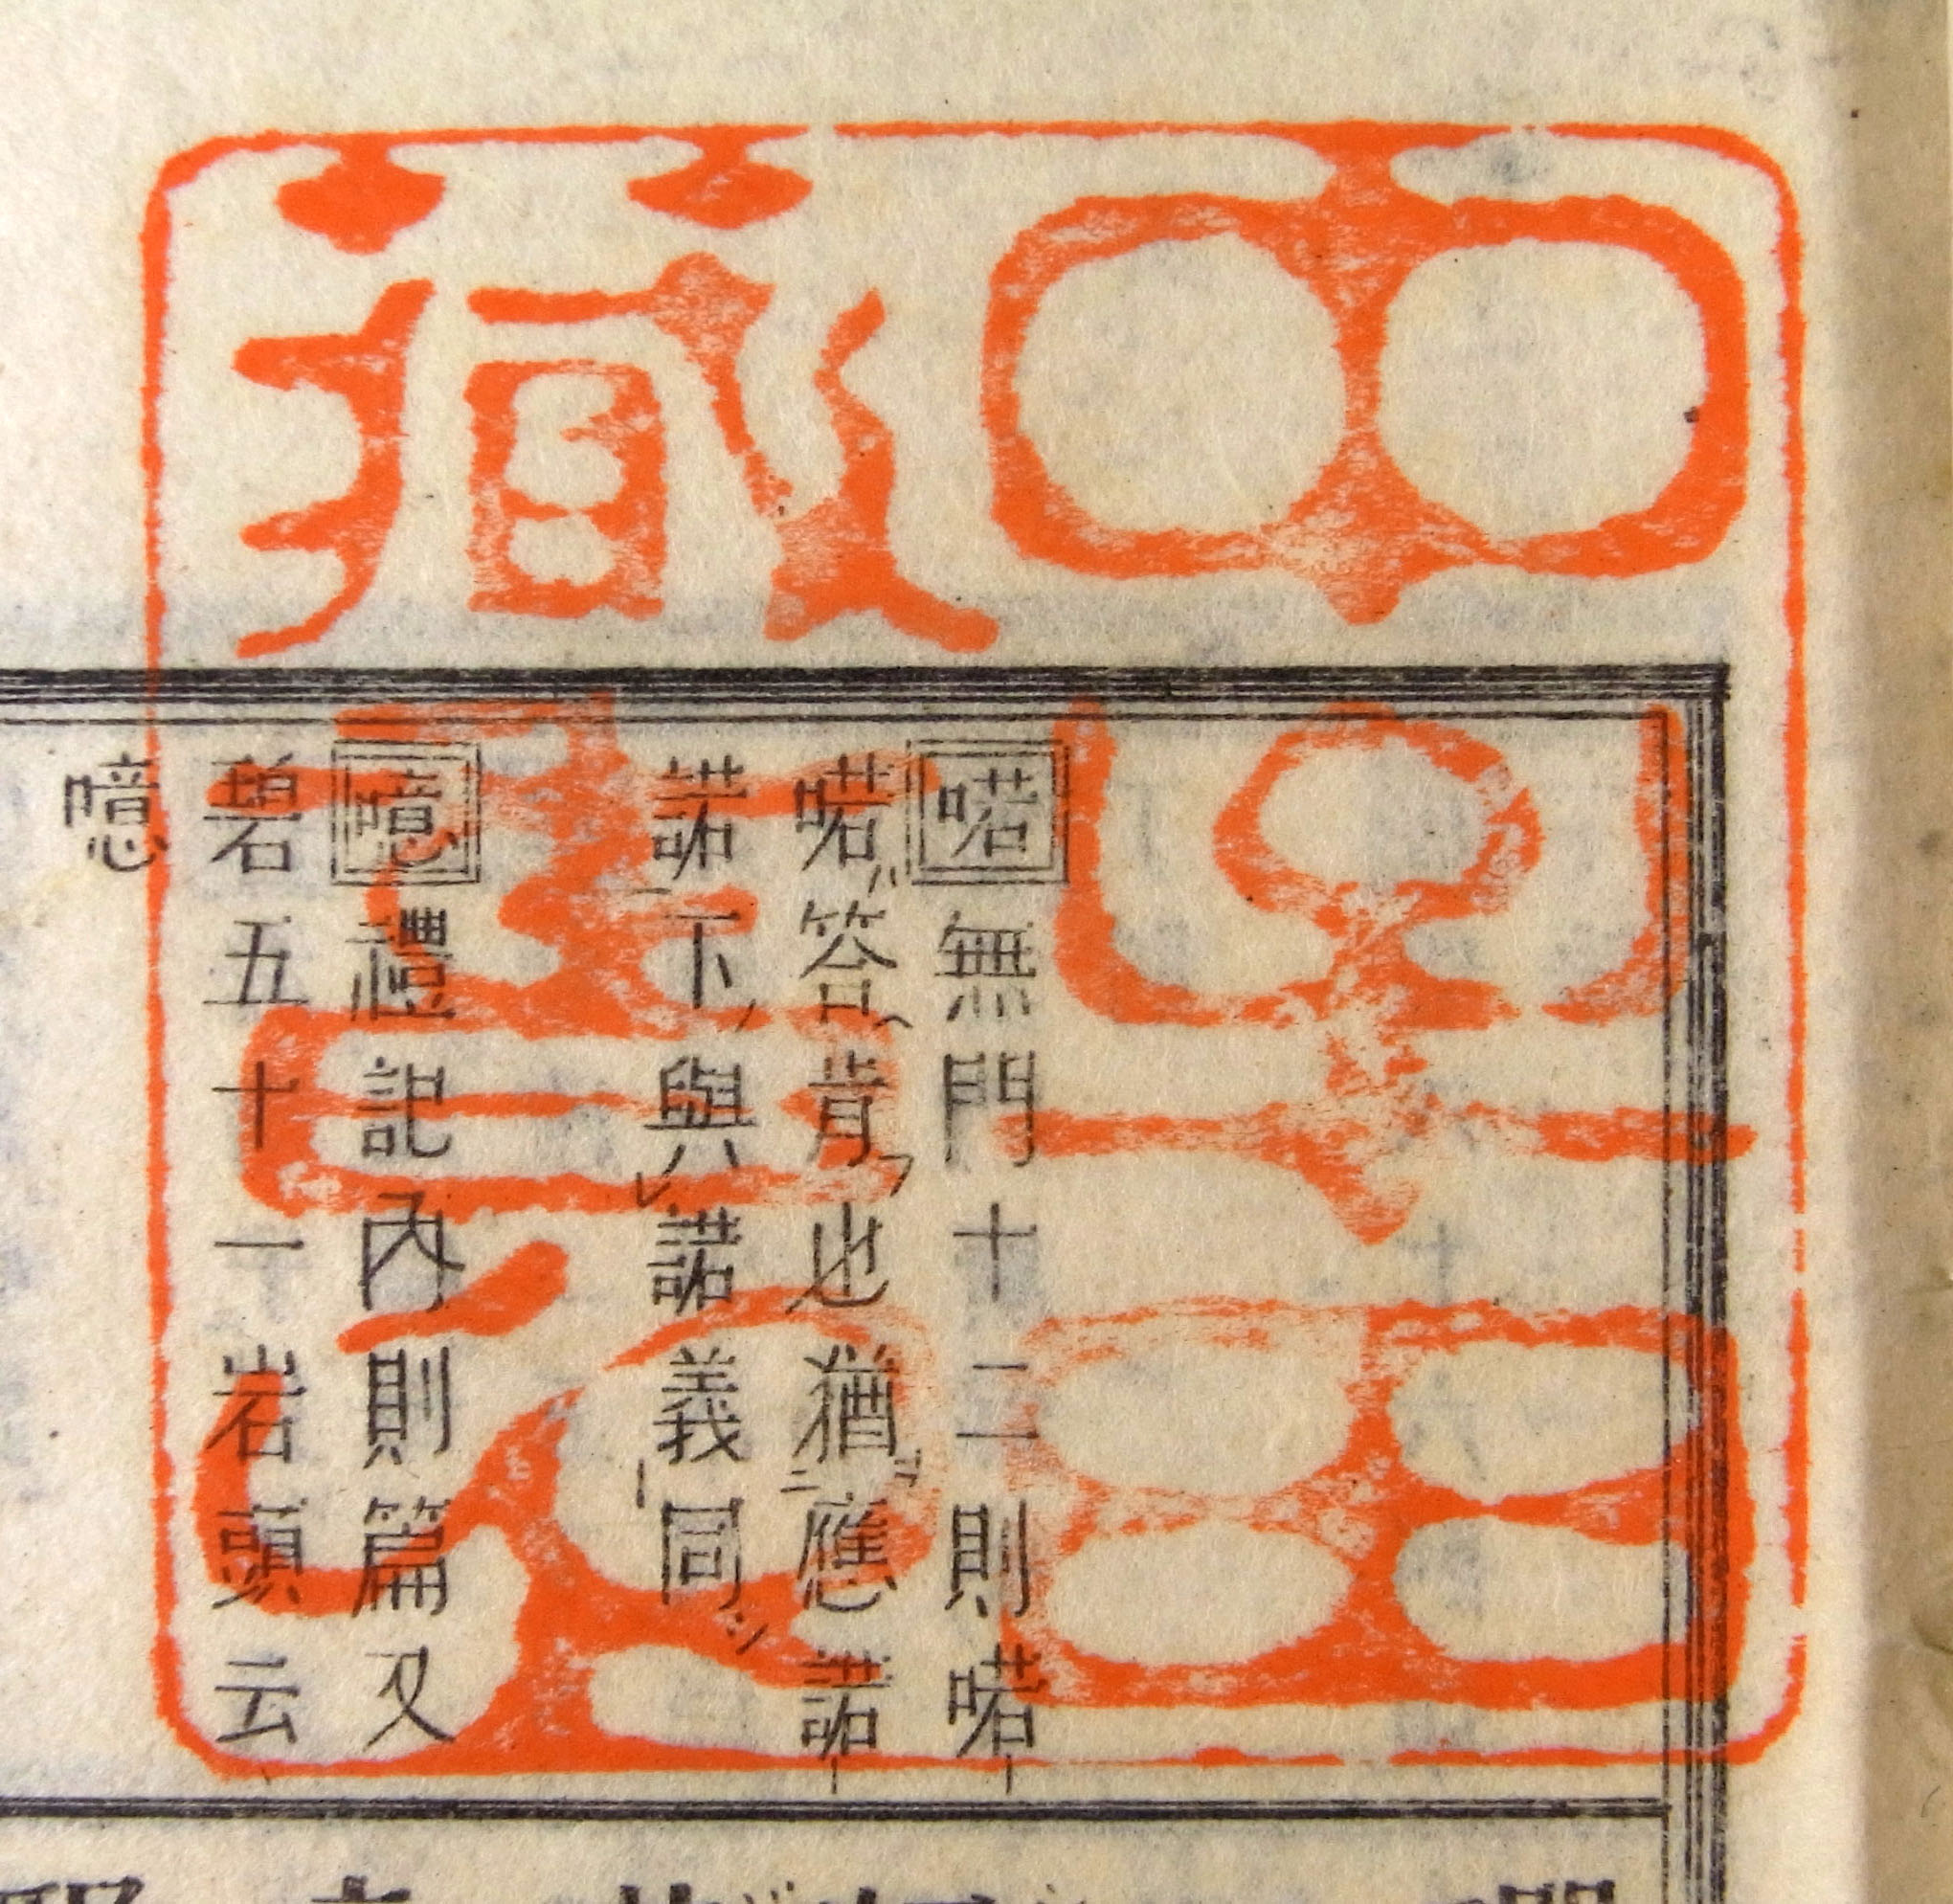 中田
藏書印
喏無門十二則喏
喏答肯也猶應諾
諾下與諾義同
噫禮記內則篇又
碧五十一岩頭云
噫